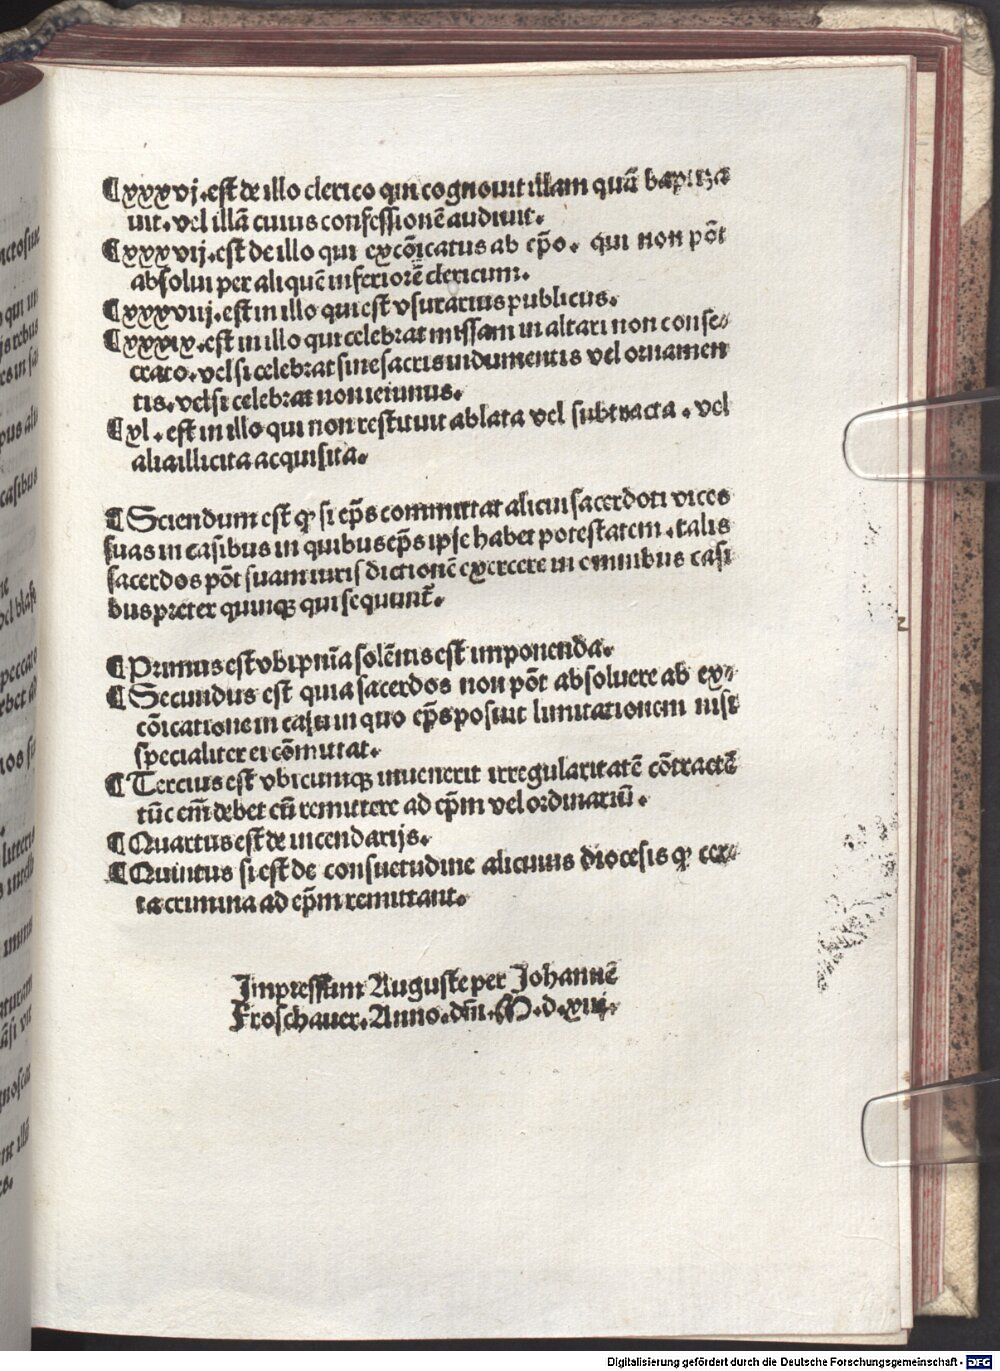 ¶xxxvj.est de illo clerico qui cognouit illam quā baptiza
uit.vel illā cuius confessionē audiuit.
¶xxxvij.est de illo qui excōicatus ab ep̄o. qui non pōt
absolui per aliquē inferiorē clericum.
¶xxxviij.est in illo qui est vsurarius publicus.
¶xxxix.est in illo qui celebrat missam in altari non conse⸗
crato.vel si celebrat sine sacris indumentis vel ornamen
tis.vel si celebrat non ieiunus.
¶xl.est in illo qui non restituit ablata vel subtracta.vel
alia illicita acquisita.
¶Sciendum est ꝙ si ep̄s committat alicui sacerdoti vices
suas in casibus in quibus ep̄s ipse habet potestatem.talis
sacerdos pōt suam iuris dictionē exercere in omnibus casi
bus preter quinqꝫ qui sequunt᷑.
¶Primus est vbi pn̄ia solēnis est imponenda.
¶Secundus est quia sacerdos non pōt absoluere ab ex⸗
cōicatione in casu in quo ep̄s posuit limitationem nisi
specialiter ei cōmittat.
¶Tercius est vbicumqꝫ inuenerit irregularitatē cōtractē
tūc em̄ debet eū remittere ad ep̄m vel ordinariū.
¶Quartus est de incendarijs.
¶Quintus si est de consuetudine alicuius diocesis ꝙ cer⸗
ta crimina ad ep̄m remittant.
Impressum Auguste per Johannē
Froschauer.Anno.dn̄i.M.d.xiij.
Digitalisierung gefördert durch die Deutsche Forschungsgemeinschaft - DFG